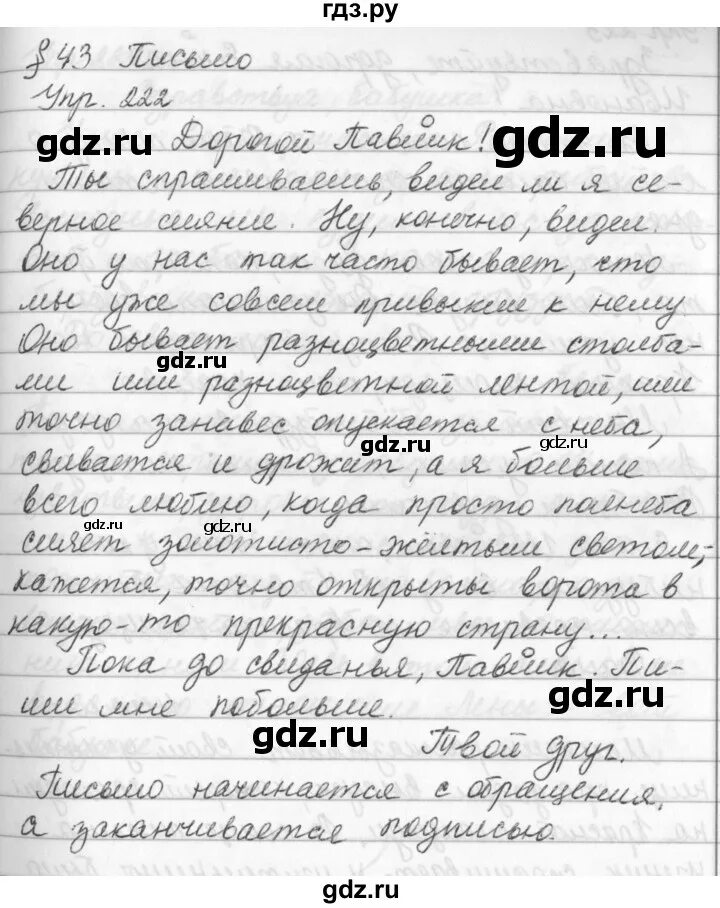 гдз.ру
§ 43 Письмо
Упр. 222
gdz.ru
gdz.ru
Дорогой Павлик!
Ты спрашиваешь, видел ли я се-
верное сияние. Ну, конечно, видел.
Оно у нас так часто бывает, что
мы уже совсем привыкли к нему.
Оно бывает разноцветными столба-
gdz.ru
ми или разноцветной лентой, или
точно занавес опускается с неба,
gdz.ru
gdz.ru
свивается и дрожит, а я больше
всего люблю, когда просто полнеба
gdz.ru
gdz.ru
сияет золотисто-жёлтым светом;
кажется, точно открыты ворота в
какую-то прекрасную страну...
Пока до свиданья, Павлик. Пи-
gdz.ru
ши мне побольше.
gdz.ru
Твой друг.
Письмо начинается с обращения,
а заканчивается подписью.
gdz.ru